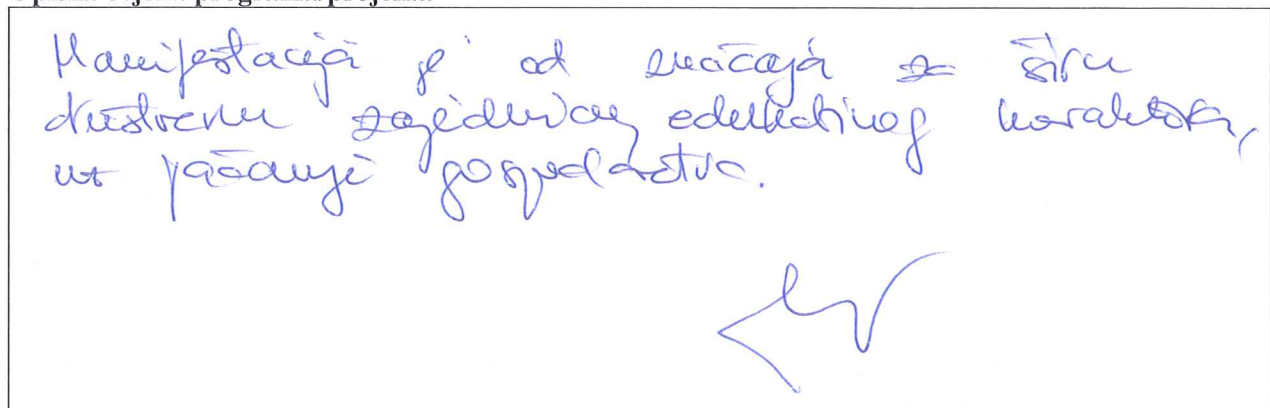 Manifestacija je od značaja za širu
društvenu zajednicu, edukativnog karaktera,
uz jačanje gospodarstva.